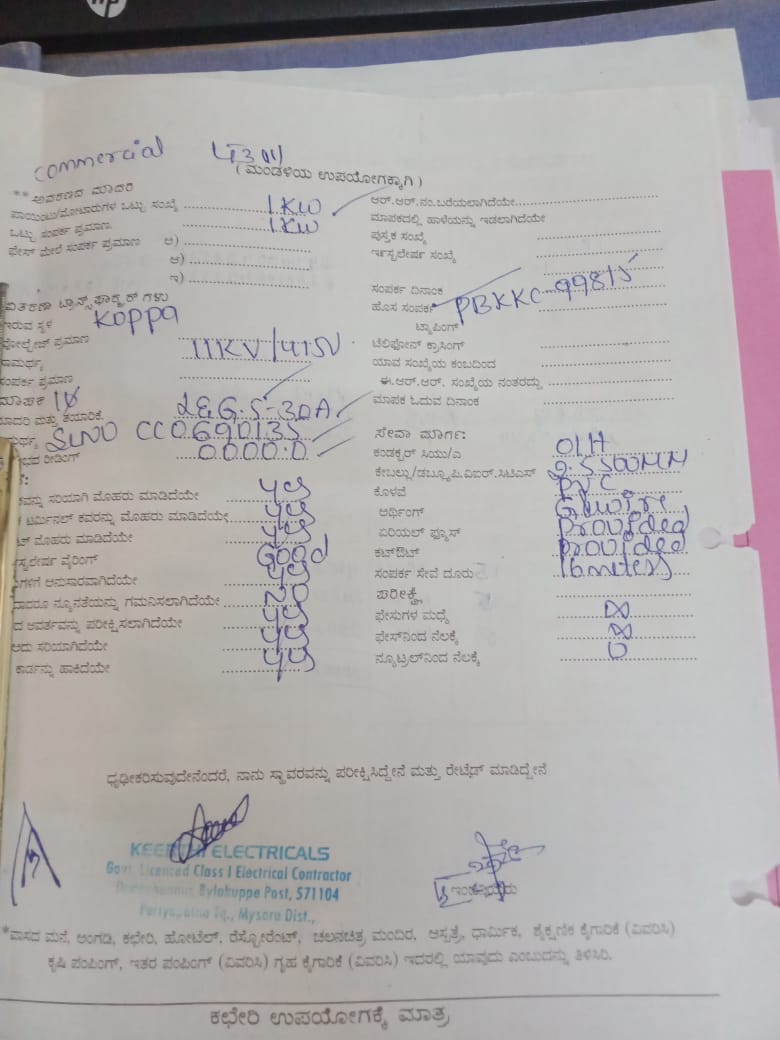 hp
commercial LT3(i)
( ಮಂಡಳಿಯ ಉಪಯೋಗಕ್ಕಾಗಿ )
ಪಾಯಿಂಟು/ಮೋಟಾರುಗಳ ಒಟ್ಟು ಸಂಖ್ಯೆ 1KW
ಒಟ್ಟು ಸಂಪರ್ಕ ಪ್ರಮಾಣ. 1KW
ಫೇಸ್ ಮೇಲೆ ಸಂಪರ್ಕ ಪ್ರಮಾಣ ಅ)
ಆ)
ಇ)
ಇರುವ ಸ್ಥಳ Koppa
ವೋಲ್ಟೇಜ್ ಪ್ರಮಾಣ 11KV/415V
ಸಾಮರ್ಥ್ಯ
ಸಂಪರ್ಕ ಪ್ರಮಾಣ
ಮಾಪಕ
ಮಾದರಿ ಮತ್ತು ತಯಾರಿಕೆ L&G. 5-30A
SLNO CC0690135
ರೀಡಿಂಗ್ 0000.0
ಸರಿಯಾಗಿ ಮೊಹರು ಮಾಡಿದೆಯೇ yes
ಟರ್ಮಿನಲ್ ಕವರನ್ನು ಮೊಹರು ಮಾಡಿದೆಯೇ yes
ಮೊಹರು ಮಾಡಿದೆಯೇ yes
ವೈರಿಂಗ್ Good
ಅನುಸಾರವಾಗಿದೆಯೇ yes
ನ್ಯೂನತೆಯನ್ನು ಗಮನಿಸಲಾಗಿದೆಯೇ NO
ದ ಆವರ್ತವನ್ನು ಪರೀಕ್ಷಿಸಲಾಗಿದೆಯೇ yes
ಅದು ಸರಿಯಾಗಿದೆಯೇ yes
ಕಾರ್ಡನ್ನು ಹಾಕಿದೆಯೇ yes
ಆರ್.ಆರ್.ನಂ.ಬರೆಯಲಾಗಿದೆಯೇ
ಮಾಪಕದಲ್ಲಿ ಹಾಳೆಯನ್ನು ಇಡಲಾಗಿದೆಯೇ
ಪುಸ್ತಕ ಸಂಖ್ಯೆ
ಇನ್ಸ್ಟಲೇಷನ್ ಸಂಖ್ಯೆ
ಸಂಪರ್ಕ ದಿನಾಂಕ
ಹೊಸ ಸಂಪರ್ಕ PBKKC 99815
ಟ್ಯಾಪಿಂಗ್
ಟೆಲಿಫೋನ್ ಕ್ರಾಸಿಂಗ್
ಯಾವ ಸಂಖ್ಯೆಯ ಕಂಬದಿಂದ
ಈ.ಆರ್.ಆರ್. ಸಂಖ್ಯೆಯ ನಂತರದ್ದು
ಮಾಪಕ ಓದುವ ದಿನಾಂಕ
ಸೇವಾ ಮಾರ್ಗ:
ಕಂಡಕ್ಟರ್ ಸಿಯು/ಎ O/H
ಕೇಬಲ್ಲು/ಡಬ್ಲ್ಯೂಪಿ.ಐಆರ್.ಸಿಟಿಎಸ್ 2.5SQMM
ಕೊಳವೆ PVC
ಅರ್ಥಿಂಗ್ GI wire
ಏರಿಯಲ್ ಫ್ಯೂಸ್ provided
ಕಟ್‌ಔಟ್ provided
ಸಂಪರ್ಕ ಸೇವೆ ದೂರು
ಪರೀಕ್ಷೆ
ಫೇಸುಗಳ ಮಧ್ಯೆ ∞
ಫೇಸ್‌ನಿಂದ ನೆಲಕ್ಕೆ ∞
ನ್ಯೂಟ್ರಲ್‌ನಿಂದ ನೆಲಕ್ಕೆ 0
ಧೃಢೀಕರಿಸುವುದೇನೆಂದರೆ, ನಾನು ಸ್ಥಾವರವನ್ನು ಪರೀಕ್ಷಿಸಿದ್ದೇನೆ ಮತ್ತು ರೇಟೆಡ್ ಮಾಡಿದ್ದೇನೆ
KEERTHI ELECTRICALS
Govt. Licenced Class I Electrical Contractor
Bylakuppe Post, 571104
Periyapatna Tq., Mysore Dist.,
*ವಾಸದ ಮನೆ, ಅಂಗಡಿ, ಕಛೇರಿ, ಹೋಟೆಲ್, ರೆಸ್ಟೋರೆಂಟ್, ಚಲನಚಿತ್ರ ಮಂದಿರ, ಆಸ್ಪತ್ರೆ, ಧಾರ್ಮಿಕ, ಶೈಕ್ಷಣಿಕ ಕೈಗಾರಿಕೆ (ವಿವರಿಸಿ)
ಕೃಷಿ ಪಂಪಿಂಗ್, ಇತರ ಪಂಪಿಂಗ್ (ವಿವರಿಸಿ) ಗೃಹ ಕೈಗಾರಿಕೆ (ವಿವರಿಸಿ) ಇದರಲ್ಲಿ ಯಾವುದು ಎಂಬುದನ್ನು ತಿಳಿಸಿರಿ.
ಕಛೇರಿ ಉಪಯೋಗಕ್ಕೆ ಮಾತ್ರ